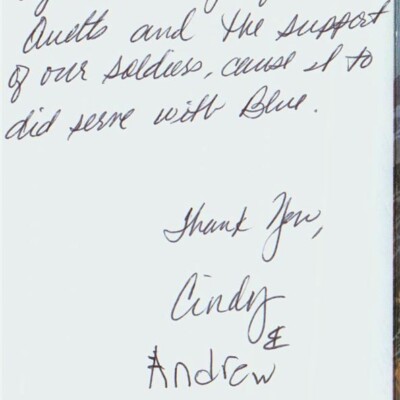 and the support
of our soldiers, cause I to
did serve with Blue.
Thank You,
Cindy
&
Andrew